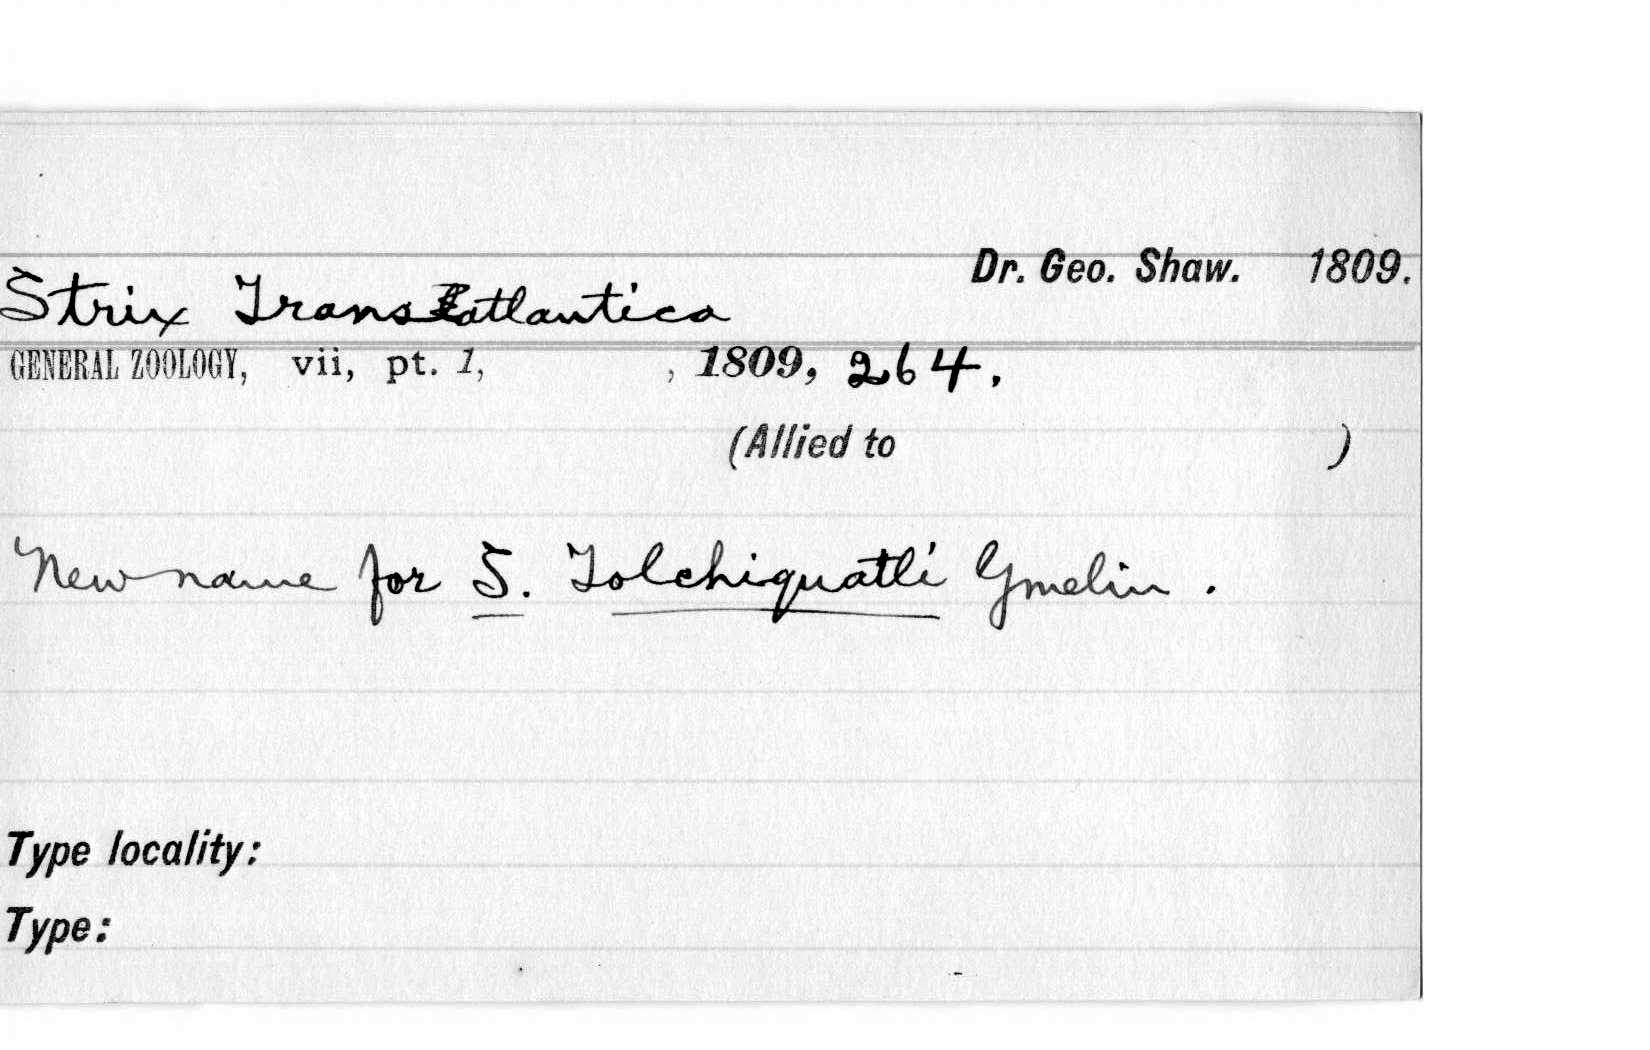 Dr. Geo. Shaw. 1809.
Strix Transatlantica
GENERAL ZOOLOGY, vii, pt. 1, , 1809, 264.
(Allied to )
New name for S. Tolchiquatli Gmelin.
Type locality:
Type: